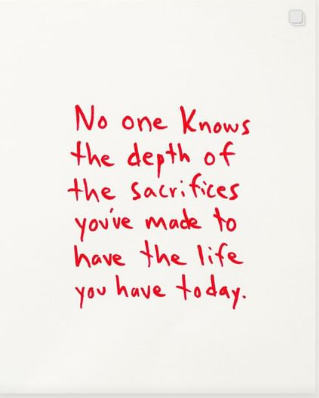 No one knows
the depth of
the sacrifices
you've made to
have the life
you have today.